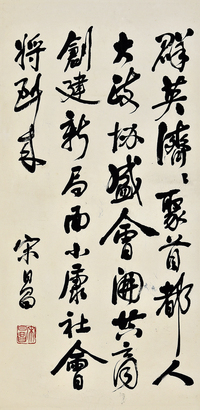 群英濟々聚首都人
大政协盛會開共商
創建新局面小康社會
將到來
宋昌